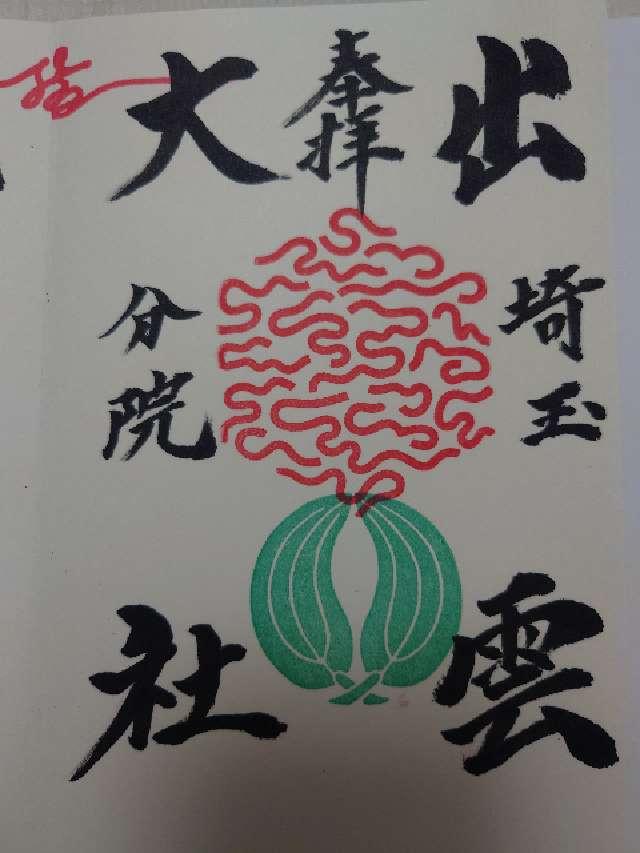 奉拝
出雲
埼玉
大社
分院